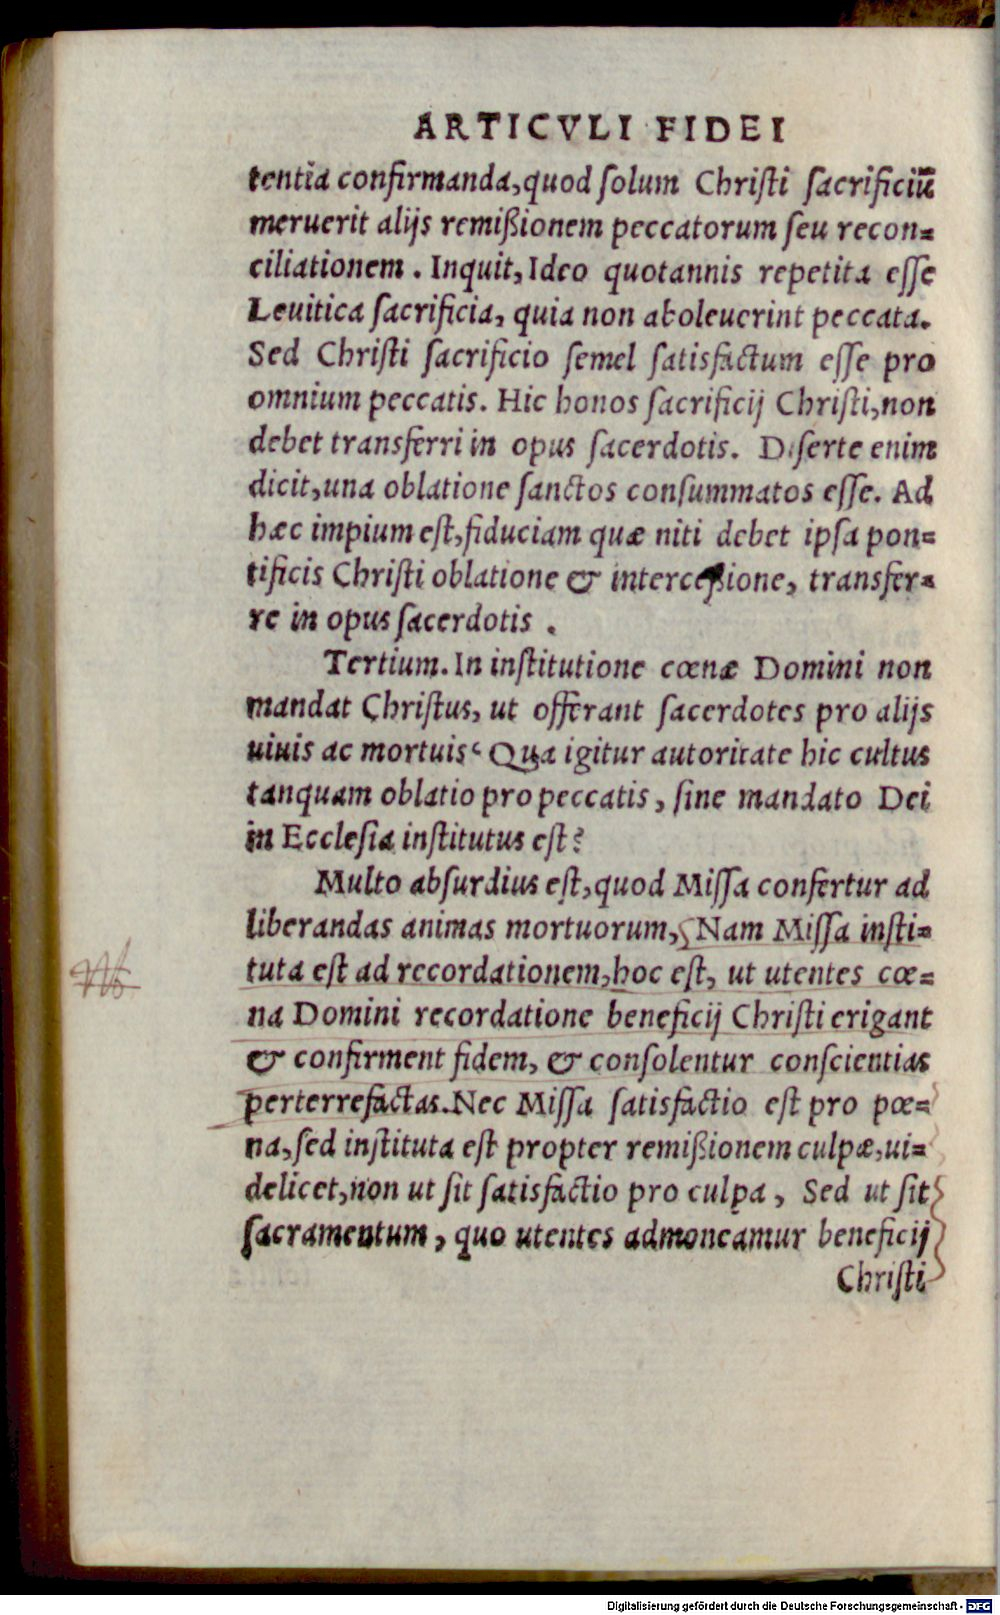 ARTICVLI FIDEI
tentia confirmanda, quod ſolum Chriſti ſacrificiũ
meruerit alijs remißionem peccatorum ſeu recon=
ciliationem . Inquit, Ideo quotannis repetita eſſe
Leuitica ſacrificia, quia non aboleuerint peccata.
Sed Chriſti ſacrificio ſemel ſatisfactum eſſe pro
omnium peccatis. Hic honos ſacrificij Chriſti, non
debet transferri in opus ſacerdotis. Diſerte enim
dicit, una oblatione ſanctos conſummatos eſſe. Ad
hæc impium eſt, fiduciam quæ niti debet ipſa pon=
tificis Chriſti oblatione & interceßione, transfer=
re in opus ſacerdotis .
Tertium. In inſtitutione cœnæ Domini non
mandat Chriſtus, ut offerant ſacerdotes pro alijs
uiuis ac mortuis. Qua igitur autoritate hic cultus
tanquam oblatio pro peccatis, ſine mandato Dei
in Eccleſia inſtitutus eſt?
Multo abſurdius eſt, quod Miſſa confertur ad
liberandas animas mortuorum, Nam Miſſa inſti=
tuta eſt ad recordationem, hoc eſt, ut utentes cœ=
na Domini recordatione beneficij Chriſti erigant
& confirment fidem, & conſolentur conſcientias
perterrefactas. Nec Miſſa ſatisfactio eſt pro pœ=
na, ſed inſtituta eſt propter remißionem culpæ, ui=
delicet, non ut ſit ſatisfactio pro culpa, Sed ut ſit
ſacramentum, quo utentes admoneamur beneficij
Chriſti
Digitalisierung gefördert durch die Deutsche Forschungsgemeinschaft - DFG